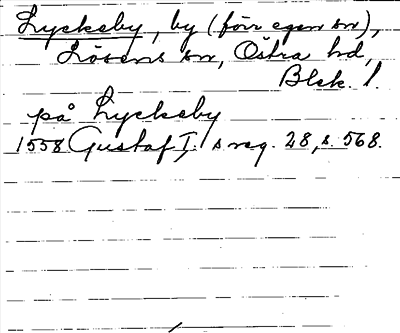 Lyckeby, by (förr egen sn),
Lösens sn, Östra hd,
Blek. l.
på Lyckeby
1558 Gustaf I:s reg. 28, s. 568.